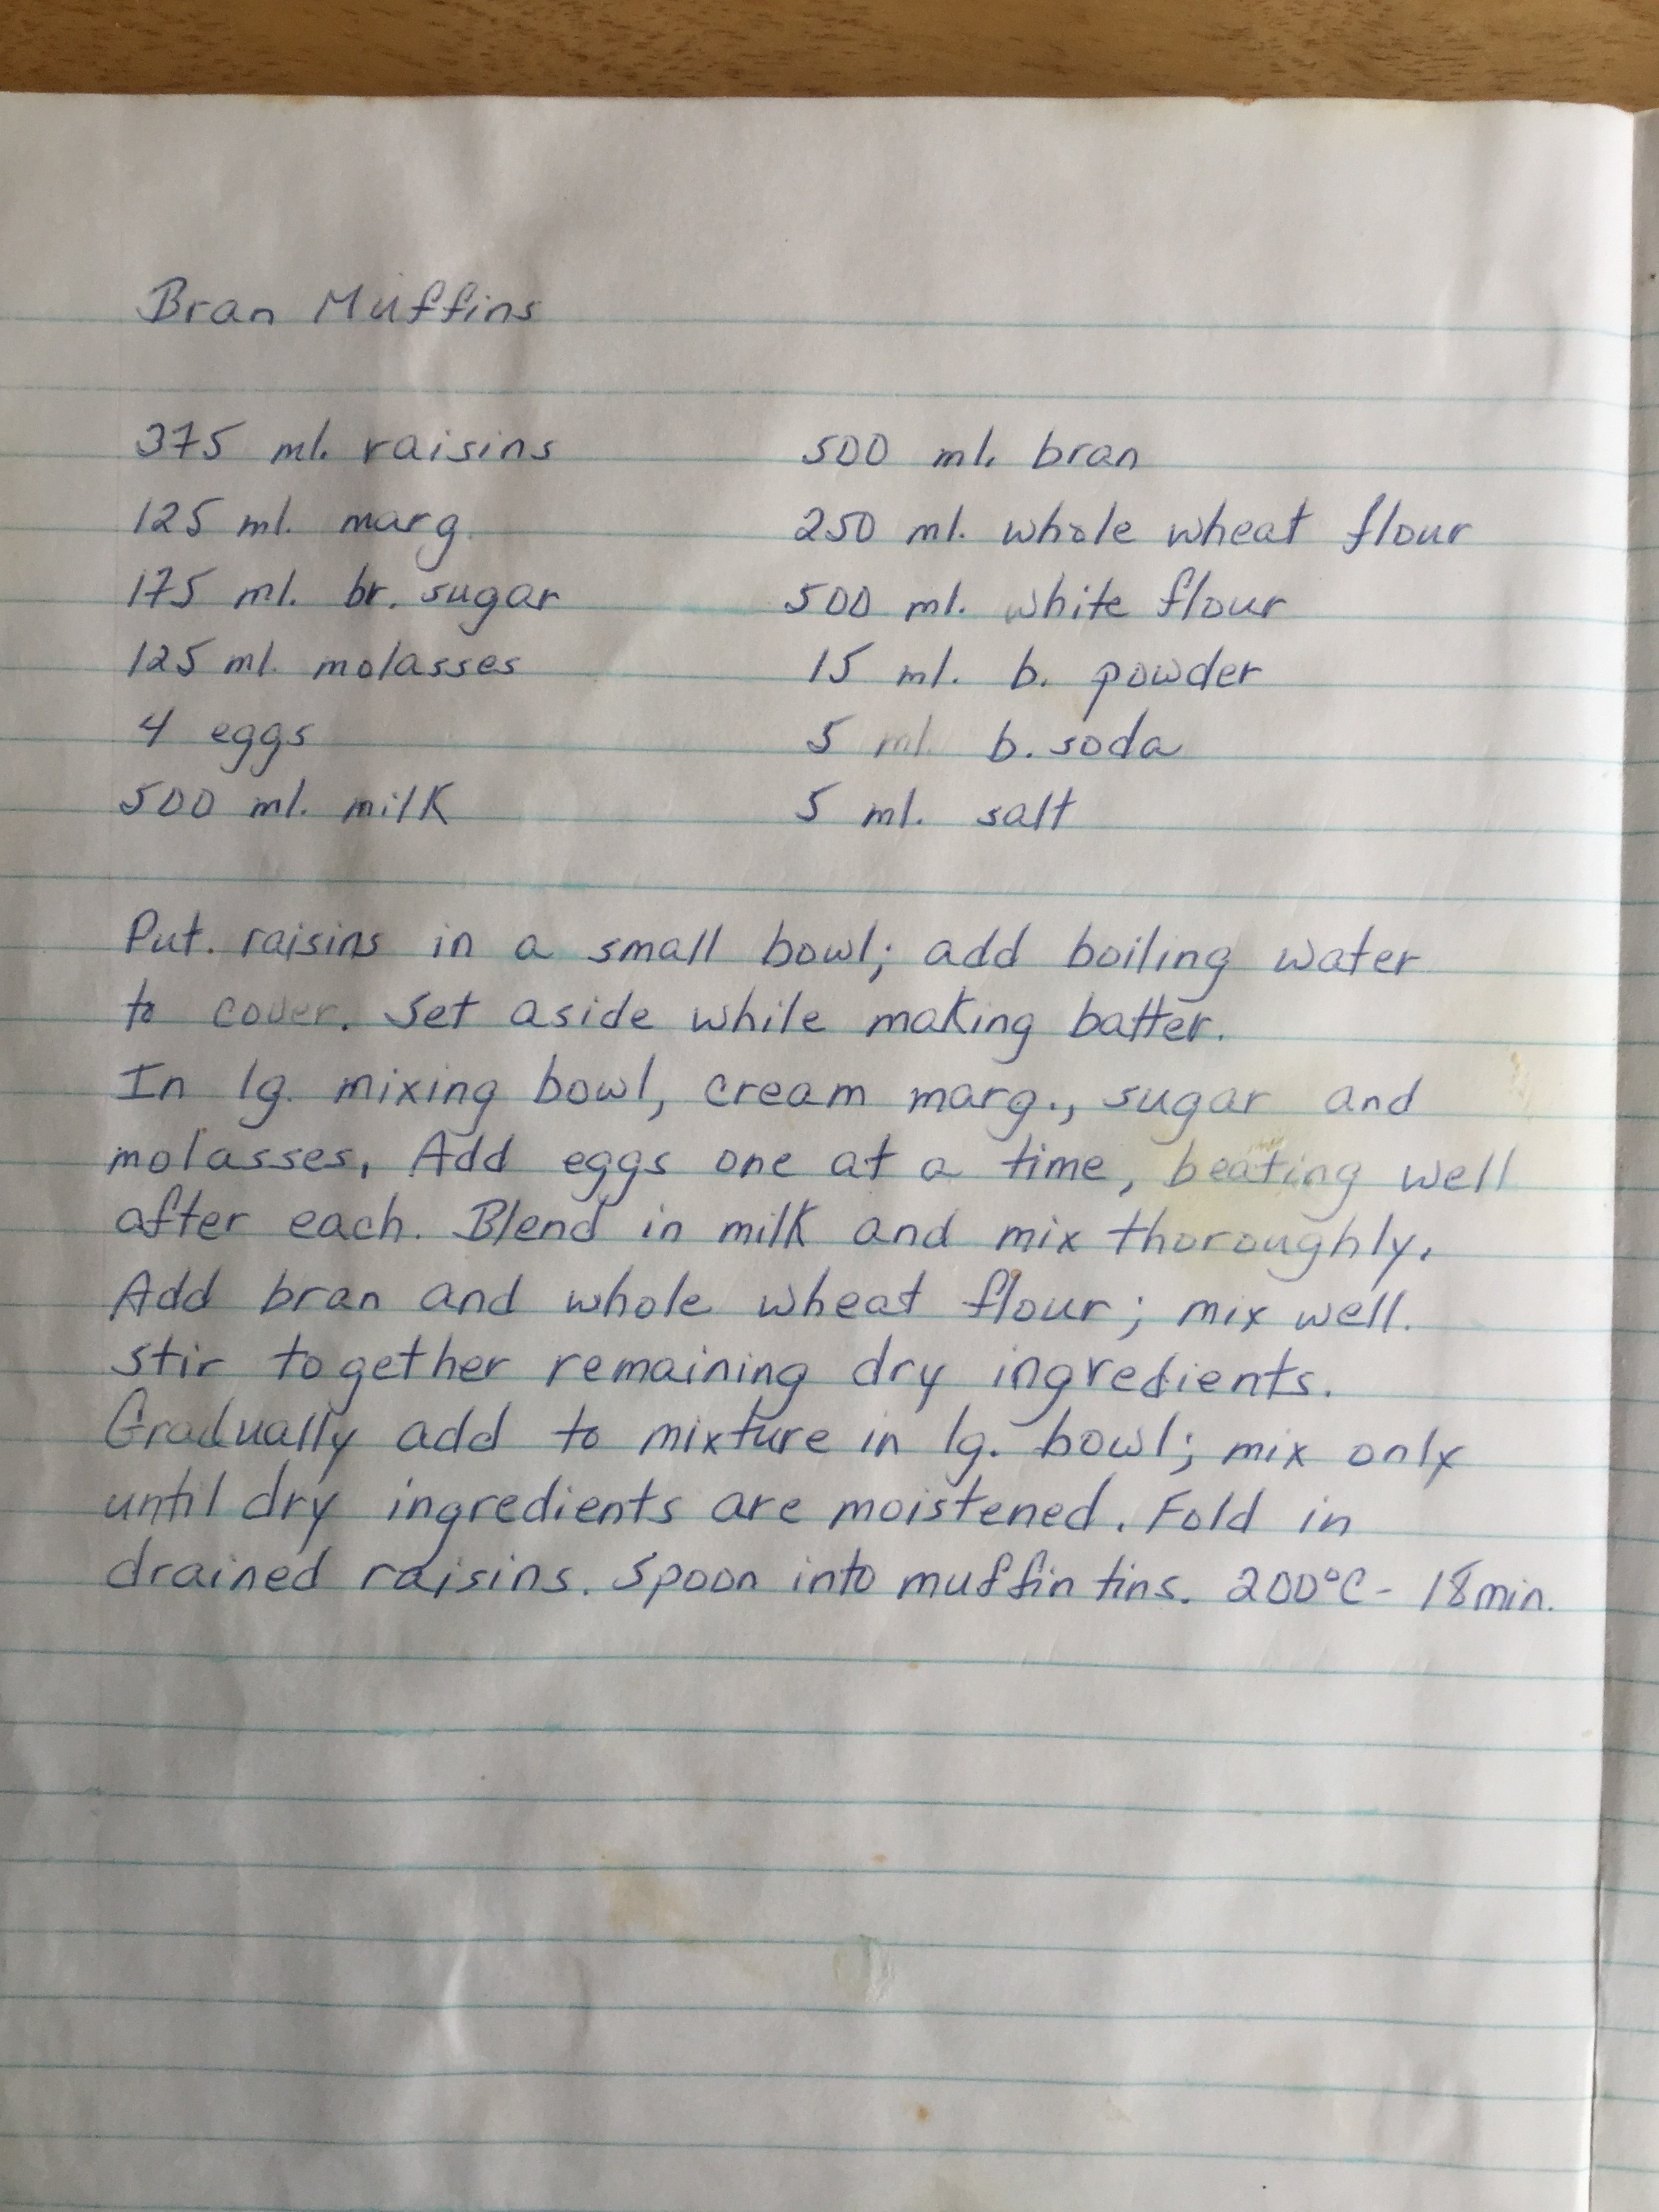 Bran Muffins
375 ml. raisins
125 ml. marg.
175 ml. br. sugar
125 ml. molasses
4 eggs
500 ml. milk
500 ml. bran
250 ml. whole wheat flour
500 ml. white flour
15 ml. b. powder
5 ml. b. soda
5 ml. salt
Put. raisins in a small bowl; add boiling water
to cover. Set aside while making batter.
In lg. mixing bowl, cream marg., sugar and
molasses. Add eggs one at a time, beating well
after each. Blend in milk and mix thoroughly.
Add bran and whole wheat flour; mix well.
Stir together remaining dry ingredients.
Gradually add to mixture in lg. bowl; mix only
until dry ingredients are moistened. Fold in
drained raisins. Spoon into muffin tins. 200°C - 18 min.